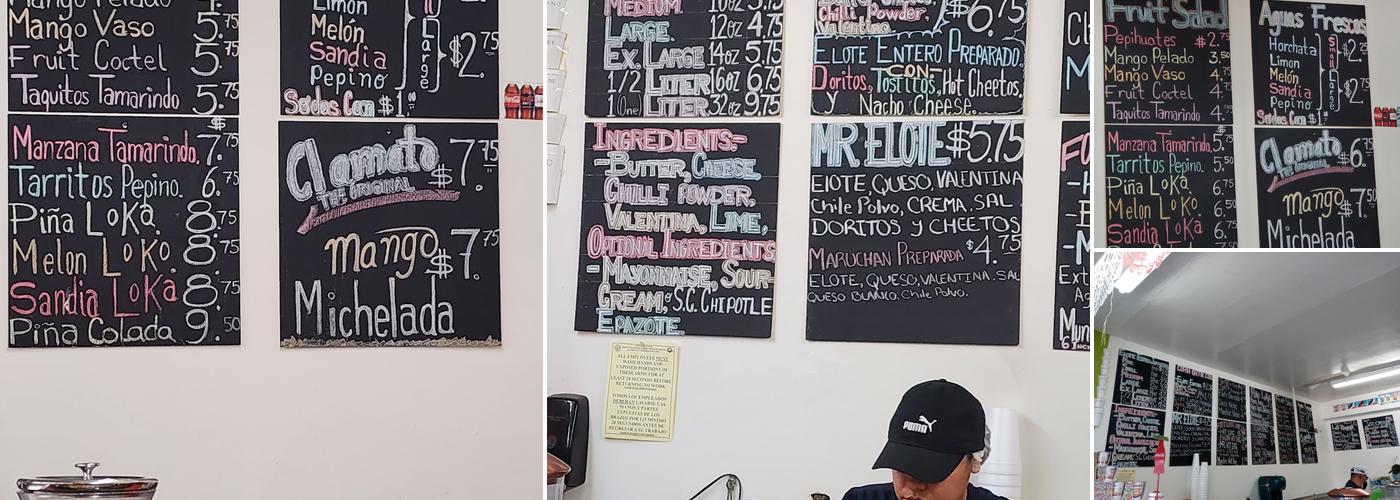 Mango Vaso 5.75
Fruit Coctel 5.
Taquitos Tamarindo 5.75
Manzana Tamarindo. $7.75
Tarritos Pepino. 6.75
Piña Loka. 8.75
Melon Loko. 8.75
Sandia Loka 8.75
Piña Colada 9.50
Limon
Melón
Sandia
Pepino
Large $2.75
Sodas Can $1.
Clamato $7.75
THE ORIGINAL
mango $7.75
Michelada
MEDIUM 10oz 3.75
LARGE 12oz 4.75
EX. LARGE 14oz 5.75
1/2 LITER 16oz 6.75
1(One) LITER 32oz 9.75
INGREDIENTS:-
-BUTTER, CHEESE
CHILLI POWDER,
VALENTINA, LIME,
OPTIONAL INGREDIENTS
-MAYONNAISE, SOUR-
CREAM, S.G. CHIPOTLE
EPAZOTE.
Chilli Powder,
Valentina $6.75
ELOTE ENTERO PREPARADO.
CON
Doritos, Tostitos, Hot Cheetos,
y Nacho Cheese.
MR. ELOTE $5.75
ElOTE, QUESO, VALENTINA
Chile Polvo, CREMA, SAL
DORITOS Y CHEETOS
MARUCHAN PREPARADA $4.75
ELOTE, QUESO, VALENTINA. SAL
QUESO BLANCO. Chile Polvo.
ALL EMPLOYEES MUST
WASH HANDS AND
EXPOSED PORTIONS OF
THEIR ARMS FOR AT
LEAST 20 SECONDS BEFORE
RETURNING TO WORK
TODOS LOS EMPLEADOS
DEBERAN LAVARSE LAS
MANOS Y PARTES
EXPUESTAS DE LOS
BRAZOS POR LO MINIMO
20 SEGUNDOS ANTES DE
REGRESAR A SU TRABAJO
PUMA
Fruit Salad
Pepihuates $2.75
Mango Pelado 3.50
Mango Vaso 4.75
Fruit Coctel 4.
Taquitos Tamarindo 4.
Manzana Tamarindo. $5.75
Tarritos Pepino. 5.50
Piña Loka. 6.75
Melon Loko. 6.50
Sandia Loka 6.
Aguas Frescas
Horchata
Limon
Melón
Sandia
Pepino
Small $2.25
Large $2.75
Sodas Can $1.
Clamato $6.75
THE ORIGINAL
mango $7.50
Michelada
INGREDIENTS:-
MR. ELOTE